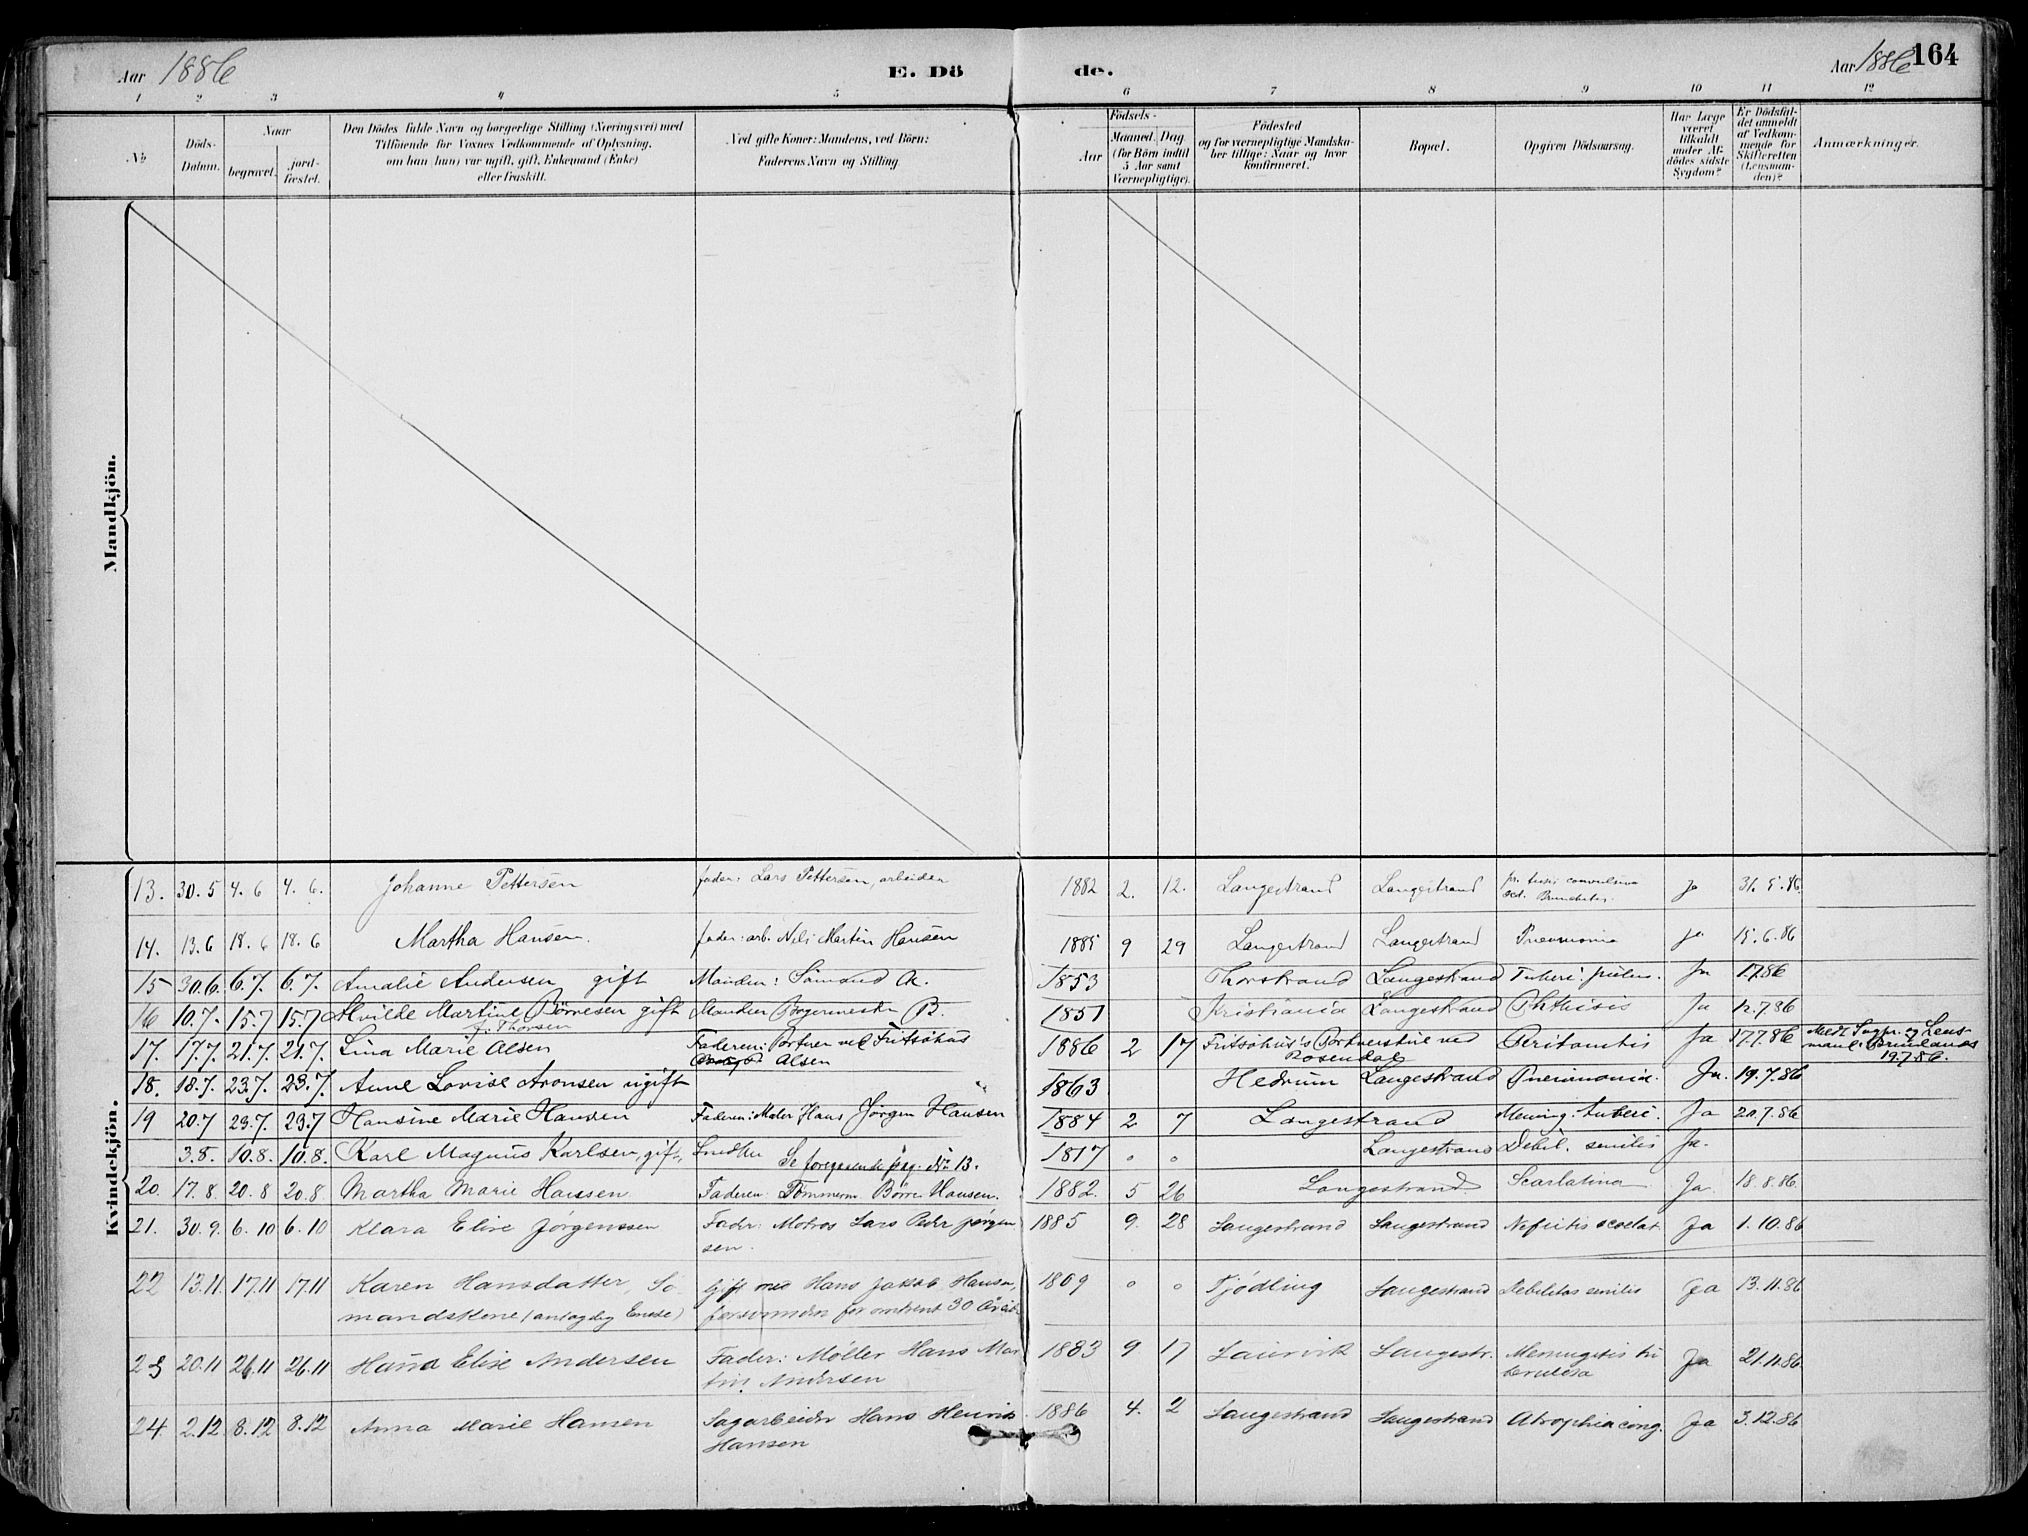 Aar 1886 E. Dö de. Aar 1886 164
1 2 3 4 5 6 7 8 9 10 11 12
No
Döds-Datum.
Naar
begravet.
jord-fæstet.
Den Dödes fulde Navn og borgerlige Stilling (Næringsvei) med
Tilföiende for Voxnes Vedkommende af Oplysning,
om han (hun) var ugift, gift, Enkemand (Enke)
eller fraskilt.
Ved gifte Koner: Mandens, ved Börn:
Faderens Navn og Stilling.
Födsels-
Aar
Maaned. Dag
(for Börn indtil
5 Aar samt
Værnepligtige).
Födested
og for værnepligtige Mandska-
ber tillige: Naar og hvor
konfirmeret.
Bopæl.
Opgiven Dödsaarsag.
Har Læge
været
tilkaldt
under Af-
dödes sidste
Sygdom?
Er Dödsfal-
det anmeldt
af Vedkom-
mende for
Skifteretten
(Lensman-
den)?
Anmærkninger.
Mandkjön.
Kvindekjön.
13. 30.5 4.6 4.6. Johanne Pettersen fader: Lars Pettersen, arbeider 1882 2. 12. Langestrand Langestrand Ja 31.5.86.
14. 13.6 18.6 18.6 Martha Hansen. fader: arb. Nils Martin Hansen 1885 9 29 Langestrand Langestrand Pneumonia Ja 15.6.86
15 30.6. 6.7. 6.7. Amalie Andersen gift Manden: Sømand A. 1853 Thorstrand Langestrand Tuberc: pulm. Ja 1.7.86
16 10.7. 15.7 15.7 Martine Børresen gift Manden B. 1851 Kristiania Langestrand Phthisis Ja 12.7.86
f. Thorsen
17. 17.7. 21.7. 21.7. Lina Marie Alsen Faderen: Portner ved Fritsøhus 1886 2 17 Fritsøhus's Portnerstue ved Peritonitis Ja 17.7.86 Meldt Sogpr. og Lens-
Alsen Rosendal 19.7.86.
18. 18.7. 23.7. 23.7. Anne Lovise Aronsen ugift " 1863 Hedrum Langestrand Pneumonia. Ja. 19.7.86
19 20.7 23.7. 23.7 Hansine Marie Hansen Faderen: Maler Hans Jørgen Hansen 1884 2 7 Langestrand Mening: tuberc. Ja 20.7.86
3.8. 10.8. 10.8. Karl Magnus Karlsen, gift, Smed Se foregaaende pag. No 13. 1817 " " Langestrand Debil. senilis Ja.
20. 17.8. 20.8 20.8. Martha Marie Hansen Faderen: Tømmerm Børre Hansen. 1882. 5 26 Langestrand Scarlatina Ja 18.8.86.
21. 30.9. 6.10 6.10 Klara Elise Jørgenssen Fader: Matros Lars Peder Jørgen- 1885 9. 28 Langestrand Langestrand Nefritis scarlat. Ja 1.10.86
sen.
22 13.11. 17.11 17.11 Karen Hansdatter, Sø- Gift med Hans Jakob Hansen, 1809 " " Tjødling Langestrand Debilitas senilis Ja 13.11.86
mandskone (antagelig Enke) forsvunden for omtrent 30 Aar
23 20.11 26.11 26.11 Hanna Elise Andersen Fader: Møller Hans Mar- 1883 9 17 Laurvik Langestr. Meningitis tu- Ja 21.11.86
tin Andersen berculosa
24 2.12 8.12 8.12 Anna Marie Hansen Sagarbeider Hans Henrik 1886 4. 2 Langestrand Langestrand Atrophia cong. Ja 3.12.86
Hansen